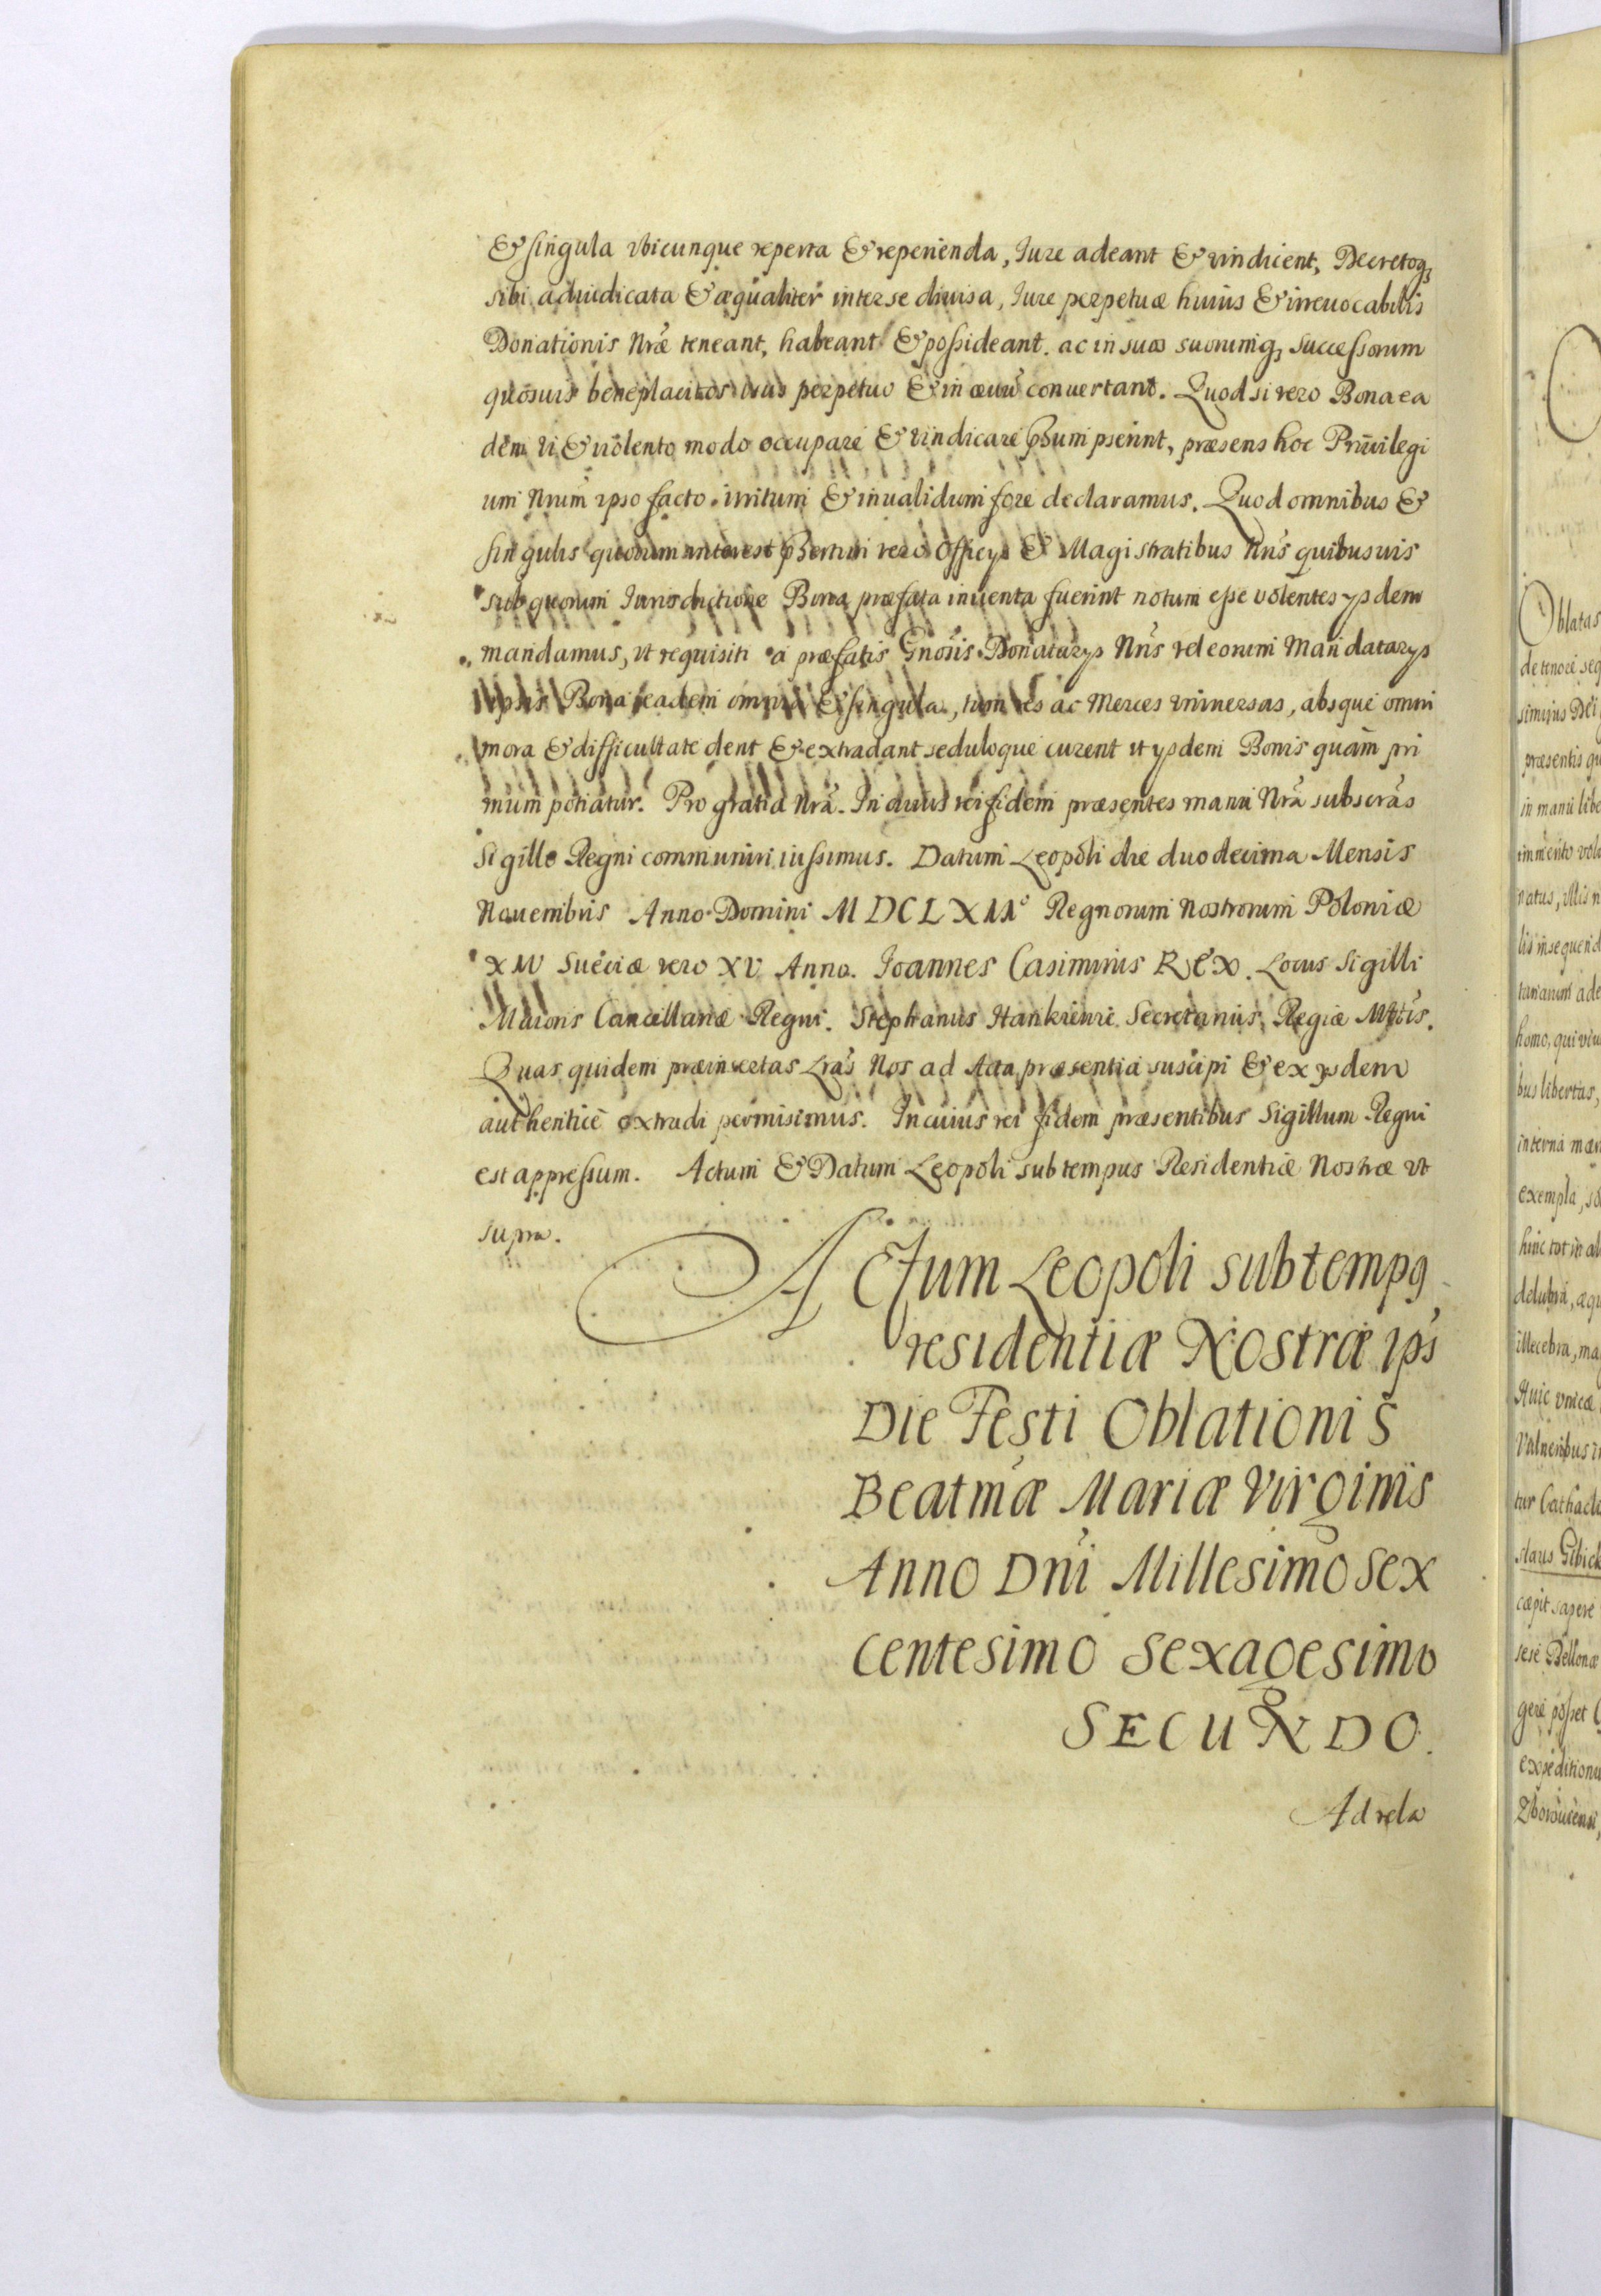 & singula vbicunque reperta & reperienda, Iure adeant & vindicent, Decretoq;
sibi adiudicata & æqualiter inter se diuisa, Iure perpetuæ huius & irreuocabilis
Donationis Nræ teneant, habeant & possideant. ac in suos suorumq; successorum
quosuis beneplacitos usus perpetuo & in æuu conuertant. Quod si vero Bona ea
dem vi & violento modo occupare & vindicare præsumpserint, præsens hoc Priuilegi
um Nrum ipso facto irritum & inualidum fore declaramus. Quod omnibus &
singulis quorum interest præsertim vero Officys & Magistratibus Nris quibusuis
sub quorum Iurisdictione Bona præfata inuenta fuerint notum esse volentes ysdem
mandamus, vt requisiti a præfatis Gnosis Donatarys Nris vel eorum Mandatarys
ipsis Bona eadem omnia & singula, tum res ac Merces vniuersas, absque omni
mora & difficultate dent & extradant seduloque curent vt ysdem Bonis quam pri
mum potiatur. Pro gratia Nra. In cuius rei fidem præsentes manu Nra subscras
Sigillo Regni communiri iussimus. Datum Leopoli die duodecima Mensis
Nouembris Anno Domini MDCLXII Regnorum Nostrorum Poloniæ
XIV Sueciæ vero XV Anno. Ioannes Casimirus REX. Locus Sigilli
Maioris Cancellariæ Regni. Stephanus Hankiewic Secretarius Regiæ Mttis.
Quas quidem præinsertas Lras Nos ad Acta præsentia suscipi & ex ysdem
authentice extradi permisimus. In cuius rei fidem præsentibus Sigillum Regni
est appressum. Actum & Datum Leopoli sub tempus Residentiæ Nostræ vt
supra.
Actum Leopoli sub temp9
residentiæ Nostræ ips
Die Festi Oblationis
Beatmæ Mariæ Virginis
Anno Dni Millesimo sex
centesimo sexagesimo
SECUNDO.
Ad rela
Oblatas
de tenore seq
simuus Dei
præsentis qu
in manu libe
natus,
lis insequend
homo, qui viu
bus libertas,
interna
exempla, so
hinc tot in al
delubra, æqu
illecebra, ma
Huic vnicæ
Vulneribus
slaus Gibick
cæpit sapere
sese Bellonæ
gere posset
expeditioni